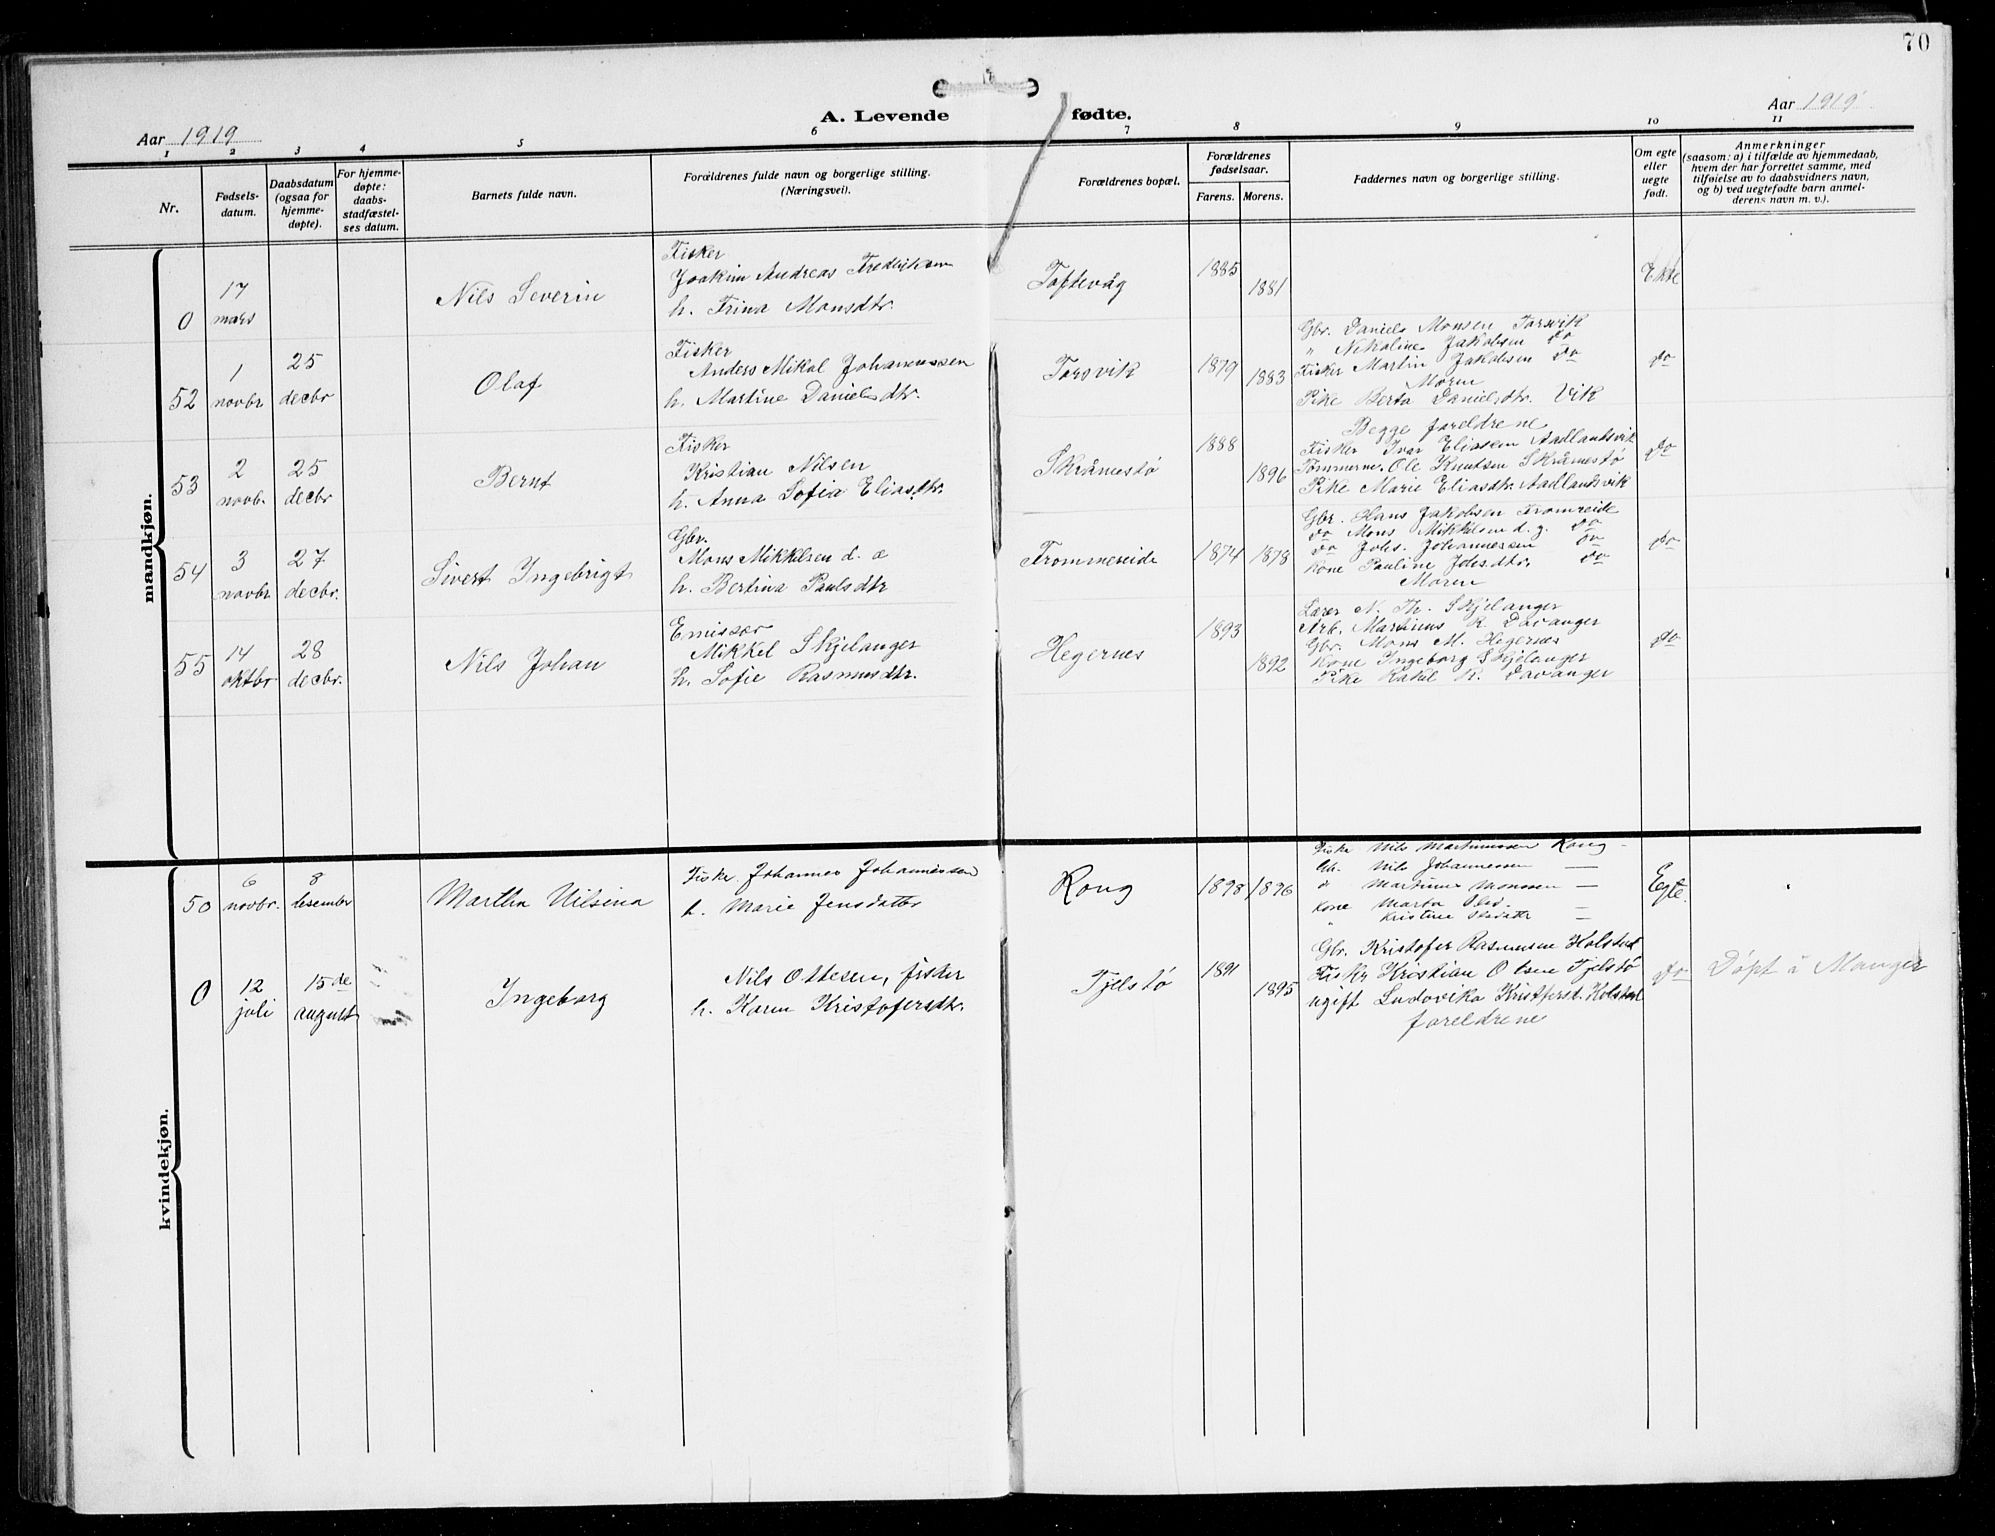 70
Aar 1919
A. Levende fødte.
Aar 1919
1 2 3 4 5 6 7 8 9 10 11
Nr.
Fødsels-
datum.
Daabsdatum
(ogsaa for
hjemme-
døpte).
For hjemme-
døpte:
daabs-
stadfæstel-
ses datum.
Barnets fulde navn.
Forældrenes fulde navn og borgerlige stilling.
(Næringsvei).
Forældrenes bopæl.
Forældrenes
fødselsaar.
Farens. Morens.
Faddernes navn og borgerlige stilling.
Om egte
eller
uegte
født.
Anmerkninger
(saasom: a) i tilfælde av hjemmedaab,
hvem der har forrettet samme, med
tilføielse av to daabsvidners navn,
og b) ved uegtefødte barn anmel-
derens navn m. v.).
mandkjøn.
0
17
mars
Nils Severin
Fisker
Joakim Andreas Fredriksen
h. Trina Monsdtr.
Toftevåg
1885
1881
Ekte
52
1
novbr
25
decbr
Olaf
Fisker
Anders Mikal Johannessen
h. Martine Danielsdtr.
Torsvik
1879
1883
Gbr. Daniels Monsen Torsvik
" Nikoline Jakobsen do
Fisker Martin Jakobsen do
Moren
Pike Berta Danielsdtr. Vik
do
53
2
novbr.
25
decbr
Bernt
Fisker
Kristian Nilsen
h. Anna Sofia Eliasdtr.
Skråmestø
1888
1896
Begge foreldrene
Fisker Ivar Eliassen Aadlandsvik
Tømmerm. Ole Knutsen Skråmestø
Pike Marie Eliasdtr. Aadlandsvik
do
54
3
novbr
27
decbr.
Sivert Ingebrigt
Gbr.
Mons Mikkelsen d. æ
h. Bertina Paulsdtr
Trommereide
1874
1878
Gbr. Hans Jakobsen Tromreide
do Mons Mikkelsen d. y. do
do Johs. Johannessen do
Kone Pauline Johsdtr. do
Moren
do
55
14
oktbr
28
decbr.
Nils Johan
Emissær
Mikkel Skjelanger
h. Sofie Rasmusdtr.
Hegernes
1893
1892
Lærer N. Th. Skjelanger
Arb. Martinus R. Davanger
Gbr. Mons M. Hegernes
Kone Ingeborg Skjelanger
Pike Rakel R. Davanger
do
kvindekjøn.
50
6
novbr.
8
desember
Martha Nilsina
Fisker Johannes Johannessen
h. Marie Jensdatter
Rong
1898
1896
Fisker Nils Martinussen Rong
Nils Johannessen —
d Martinus Monssen —
Kone Marta —
" Kristine —
Egte.
0
12
juli
15de
august
Ingeborg
Nils Ottesen, fisker
h. Karen Kristofersdtr.
Tjelstø
1891
1895
Gbr. Kristofer Rasmussen Holstad
Fisker Kristian Olsen Tjelstø
ugift Ludovika Kristofersd. Holstad
foreldrene
do
Døpt i Manger